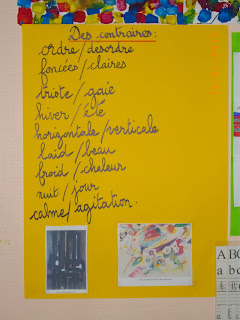 Des contraires:
ordre/desordre
foncées/claires
triste/gaie
hiver/été
horizontale/verticale
laid/beau
froid/chaleur
nuit/jour
calme/agitation.